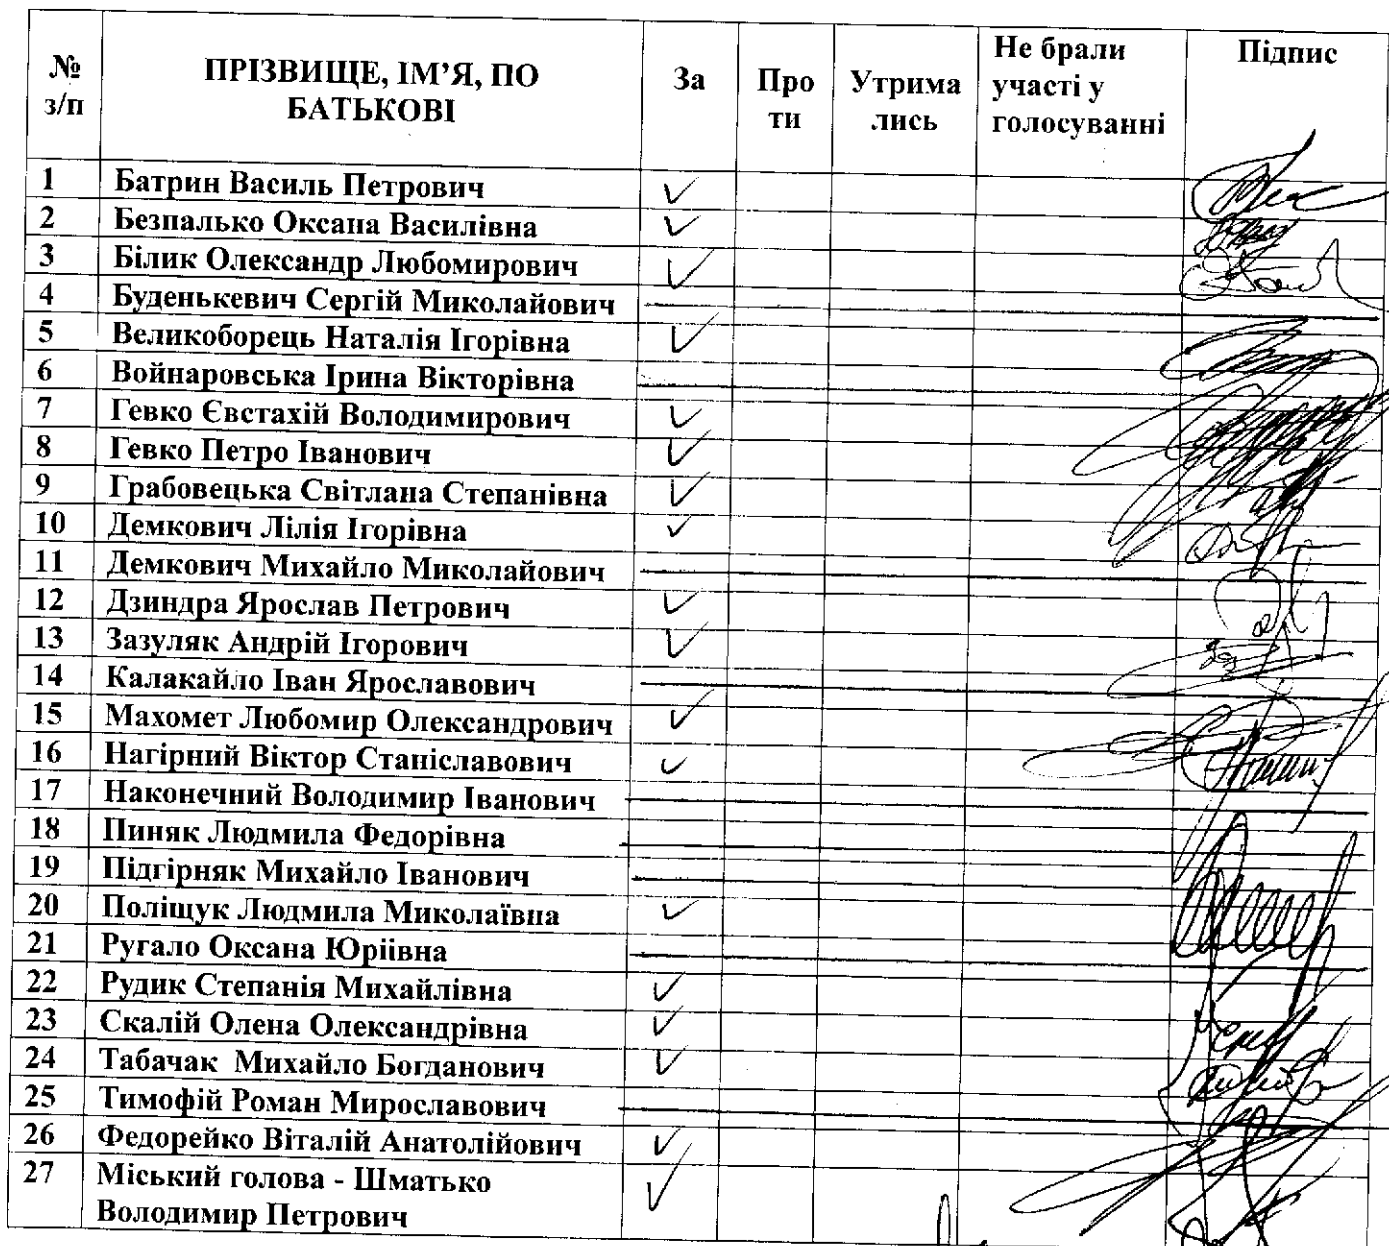 № з/п ПРІЗВИЩЕ, ІМ’Я, ПО БАТЬКОВІ За Про ти Утрима лись Не брали участі у голосуванні Підпис
1 Батрин Василь Петрович ✓
2 Безпалько Оксана Василівна ✓
3 Білик Олександр Любомирович ✓
4 Буденькевич Сергій Миколайович
5 Великоборець Наталія Ігорівна ✓
6 Войнаровська Ірина Вікторівна
7 Гевко Євстахій Володимирович ✓
8 Гевко Петро Іванович ✓
9 Грабовецька Світлана Степанівна ✓
10 Демкович Лілія Ігорівна ✓
11 Демкович Михайло Миколайович
12 Дзиндра Ярослав Петрович ✓
13 Зазуляк Андрій Ігорович ✓
14 Калакайло Іван Ярославович
15 Махомет Любомир Олександрович ✓
16 Нагірний Віктор Станіславович ✓
17 Наконечний Володимир Іванович
18 Пиняк Людмила Федорівна
19 Підгірняк Михайло Іванович
20 Поліщук Людмила Миколаївна ✓
21 Ругало Оксана Юріівна
22 Рудик Степанія Михайлівна ✓
23 Скалій Олена Олександрівна ✓
24 Табачак Михайло Богданович ✓
25 Тимофій Роман Мирославович
26 Федорейко Віталій Анатолійович ✓
27 Міський голова - Шматько ✓
Володимир Петрович